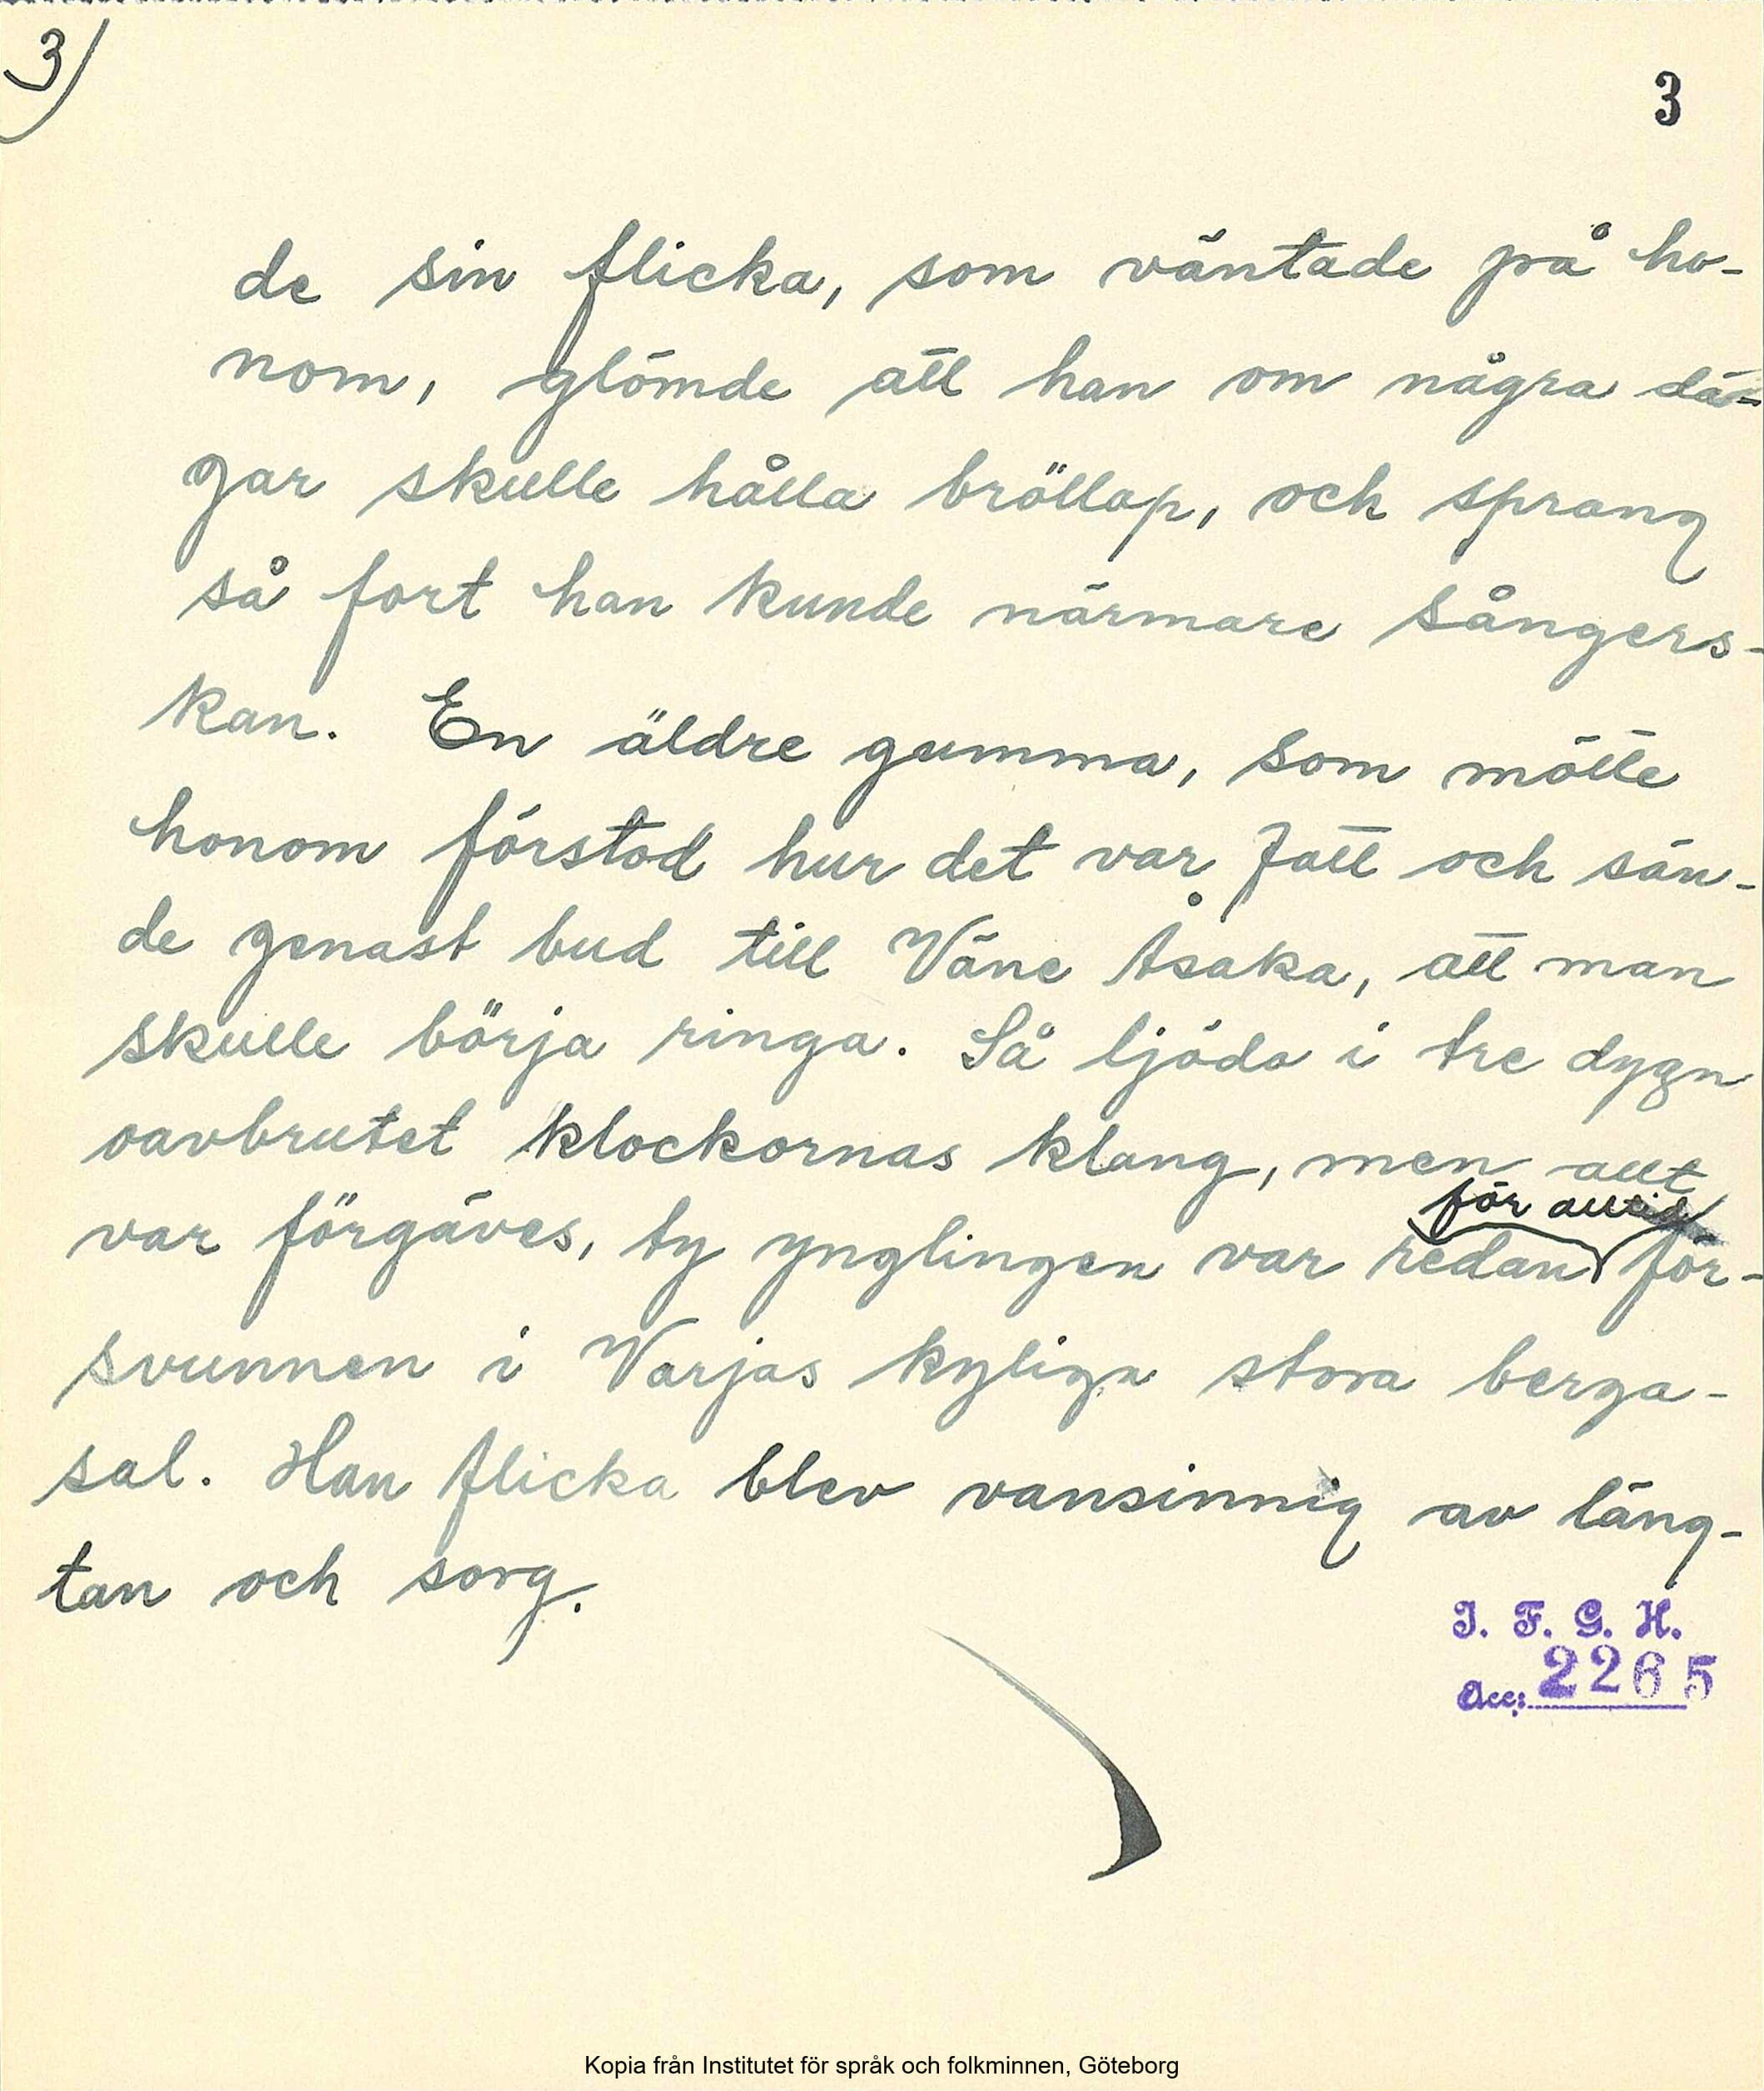 3)
3
de sin flicka, som väntade på ho-
nom, glömde att han om några da-
gar skulle hålla bröllop, och sprang
så fort han kunde närmare sångers-
kan. En äldre gumma, som mötte
honom förstod hur det var fatt och sän-
de genast bud till Väne Åsaka, att man
skulle börja ringa. Så ljödo i tre dygn
oavbrutet klockornas klang, men allt
för alltid
var förgäves, ty ynglingen var redan för-
svunnen i Varjas kyliga stora berga-
sal. Han flicka blev vansinnig av läng-
tan och sorg.
I. F. G. H.
Acc: 2265
Kopia från Institutet för språk och folkminnen, Göteborg